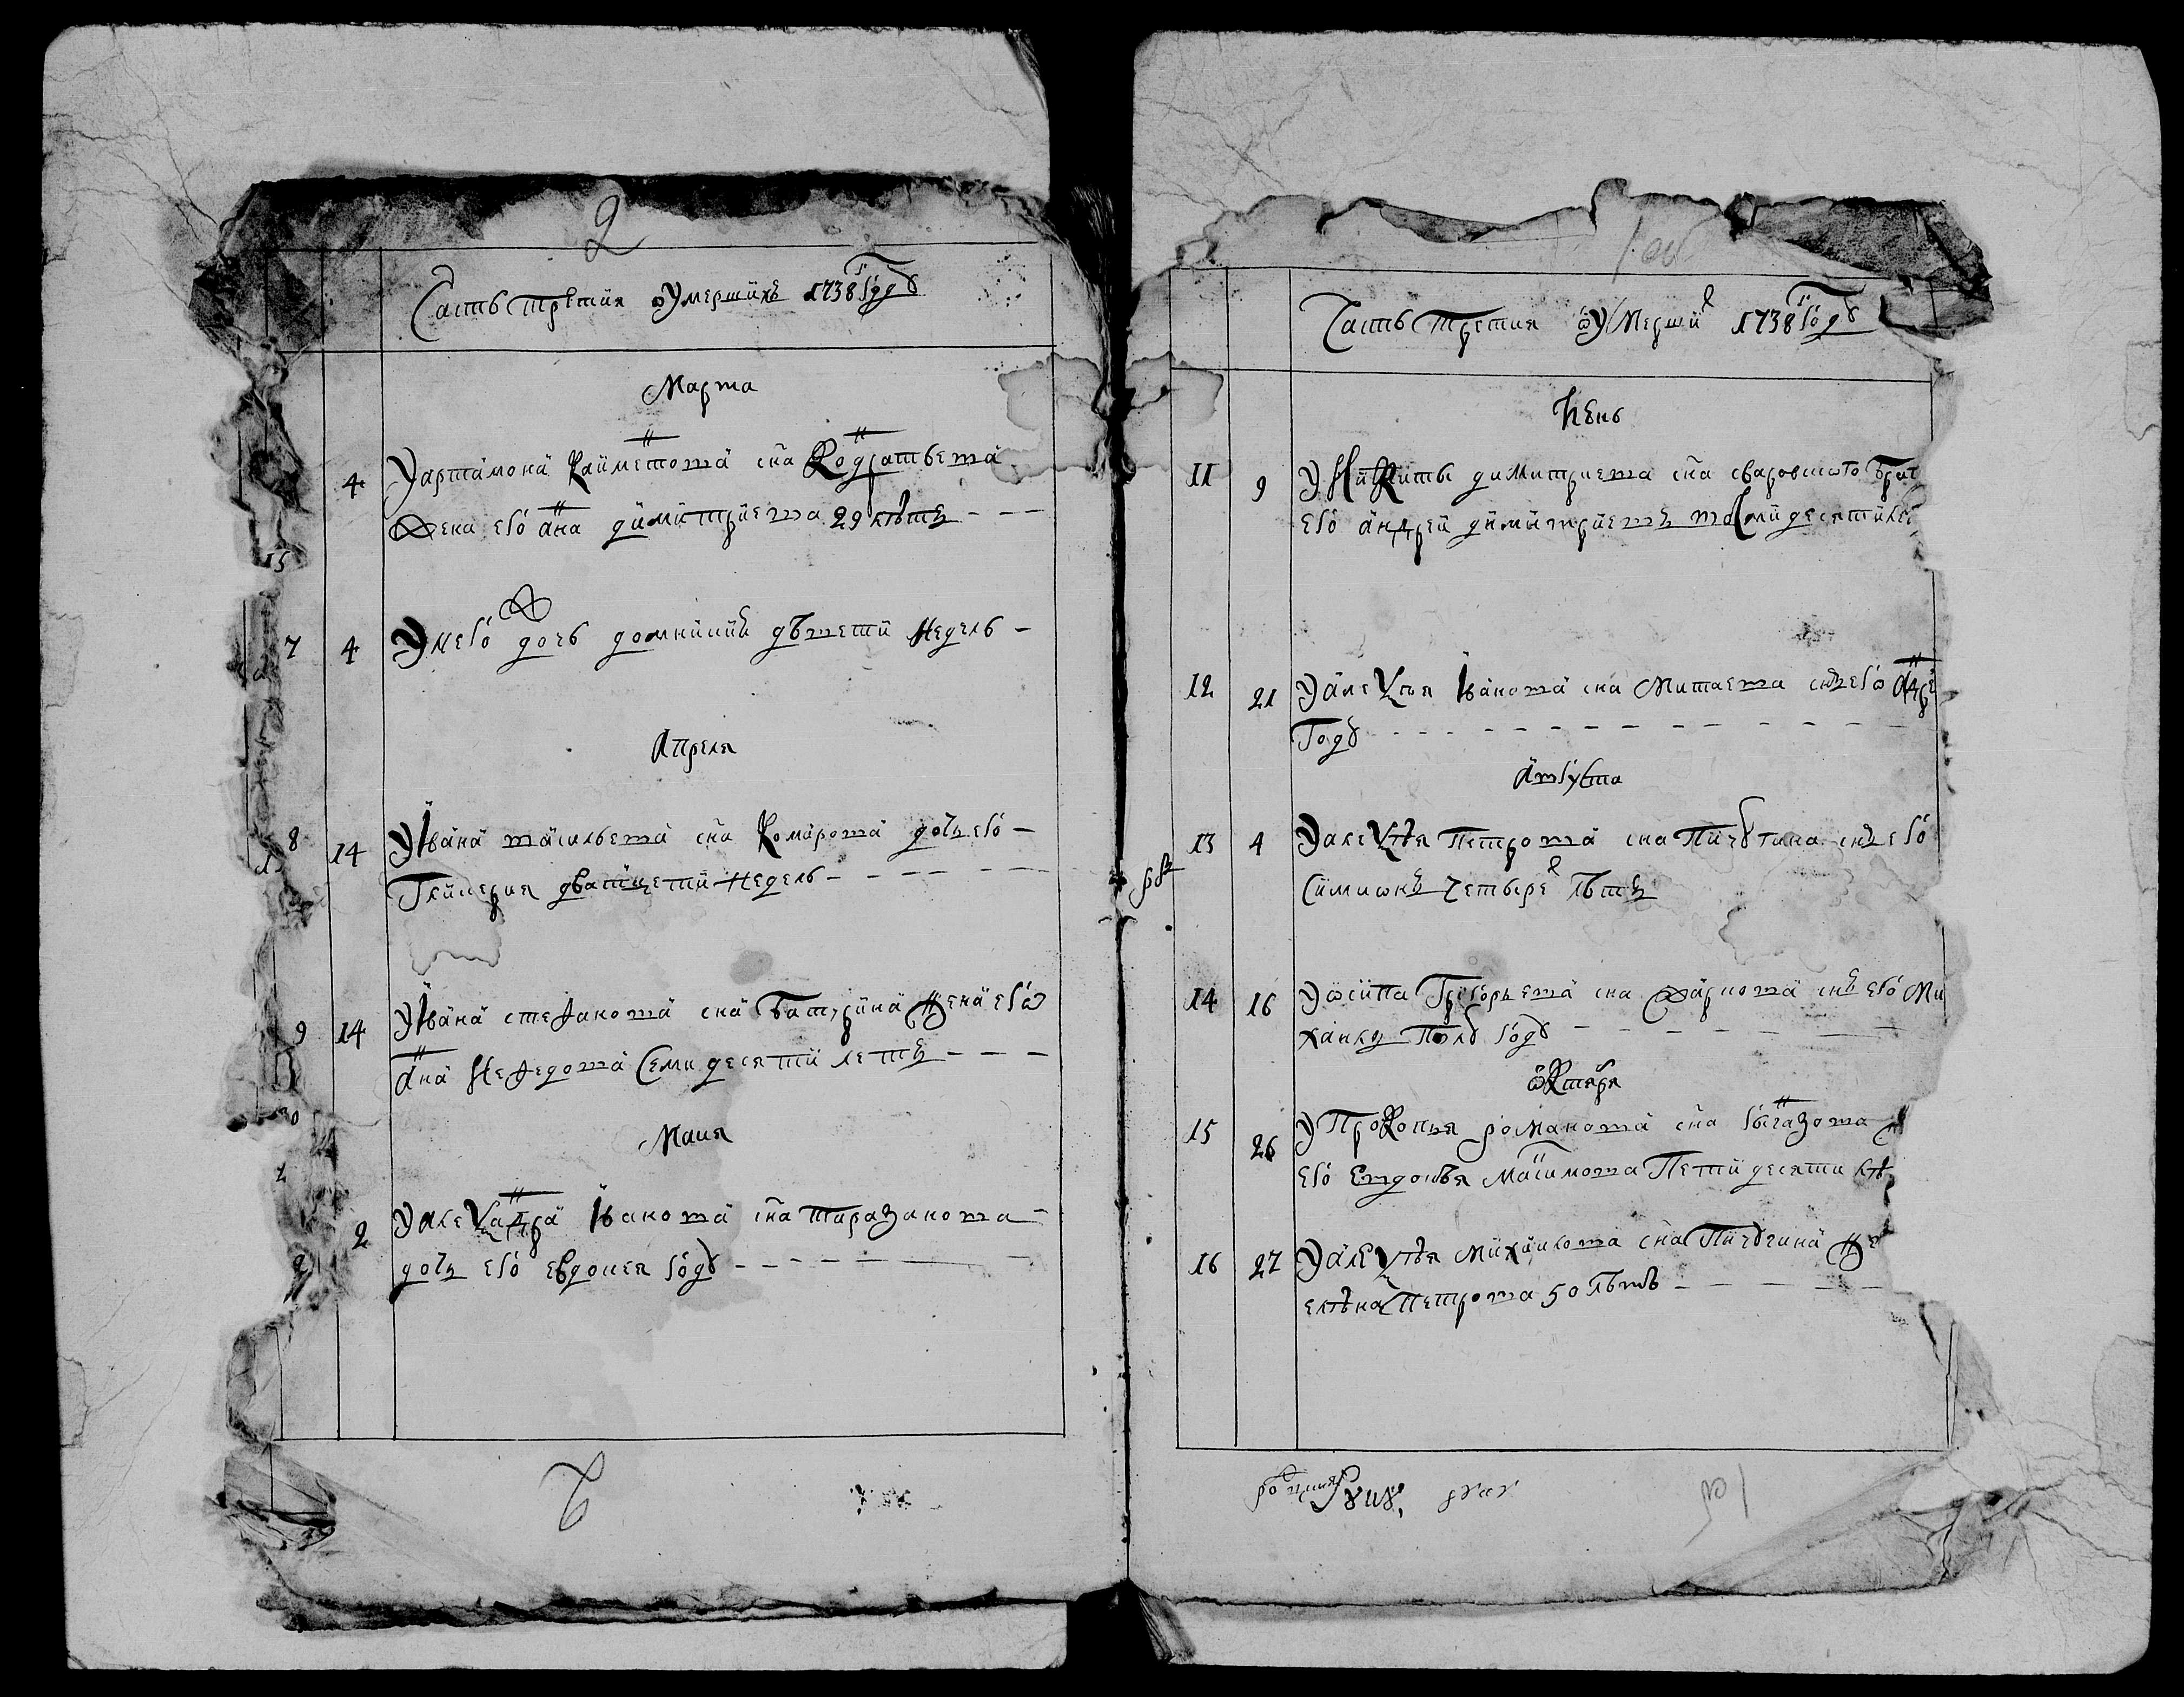 2
Часть третия оумершихъ 1738 году
Марта
4 У артамона каиметова сна Кодратьева
жена его ана димитриева 29 лѣтъ
15
7 4 У нево ж дочь домникия двенети недель
Апреля
8 14 У Ивана васильева сна Комарова дочь ево
Гликерия дватцети недель
9 14 У Ивана стефанова сна Батурина жена ево
Ана Нефедова семидесяти летъ
Маия
2 У Алеѯадра Иванова сна таразанова
дочь ево евдокея году
Часть третия оумерши х 1738 году
Июнь
11 9 У Никиты димитриева сна сваровского брат
ево андрей димитриевъ восмидесяти
12 21 У алеѯѣя Иванова сна Митаева снъ ево Адре
году
Августа
13 4 У алеѯѣя Петрова сна Пичугина снъ ево
Симионъ четыре х лѣтъ
14 16 У осипа Григорьева сна Жаркова снъ ево Ми
хаила полу году
октебря
15 26 У Прокопья романова сна сычазова
ево Евдокѣя масимова Петидесяти лѣ
16 27 У алеѯѣя михаилова сна Пичугина же
елѣна петрова 50 лѣтъ